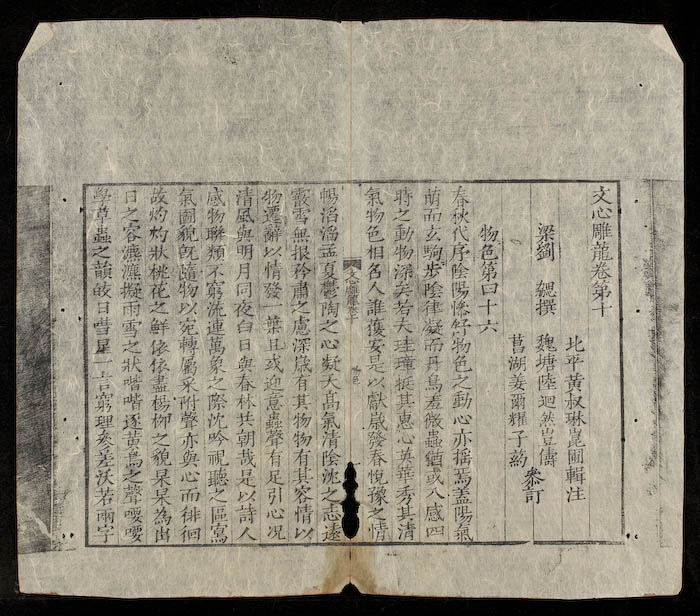 文心雕龍卷第十
梁劉 勰撰
北平黃叔琳崑圃輯注
魏塘陸 迴然豈儔
苕湖姜爾耀子葯
參訂
物色第四十六
春秋代序陰陽慘舒物色之動心亦搖焉蓋陽氣
萌而玄駒步陰律凝而丹鳥羞微蟲猶或入感四
時之動物深矣若夫珪璋挺其惠心英華秀其清
氣物色相召人誰獲安是以獻歲發春悅豫之情
暢滔滔孟夏鬱陶之心凝天高氣清陰沈之志遠
霰雪無垠矜肅之慮深歲有其物物有其容情以
物遷辭以情發一葉且或迎意蟲聲有足引心況
清風與明月同夜白日與春林共朝哉是以詩人
感物聯類不窮流連萬象之際沈吟視聽之區寫
氣圖貌既隨物以宛轉屬采附聲亦與心而徘徊
故灼灼狀桃花之鮮依依盡楊柳之貌杲杲為出
日之容瀌瀌擬雨雪之狀喈喈逐黃鳥之聲喓喓
學草蟲之韻皎日嘒星一言窮理參差沃若兩字
文心雕龍卷十
物色